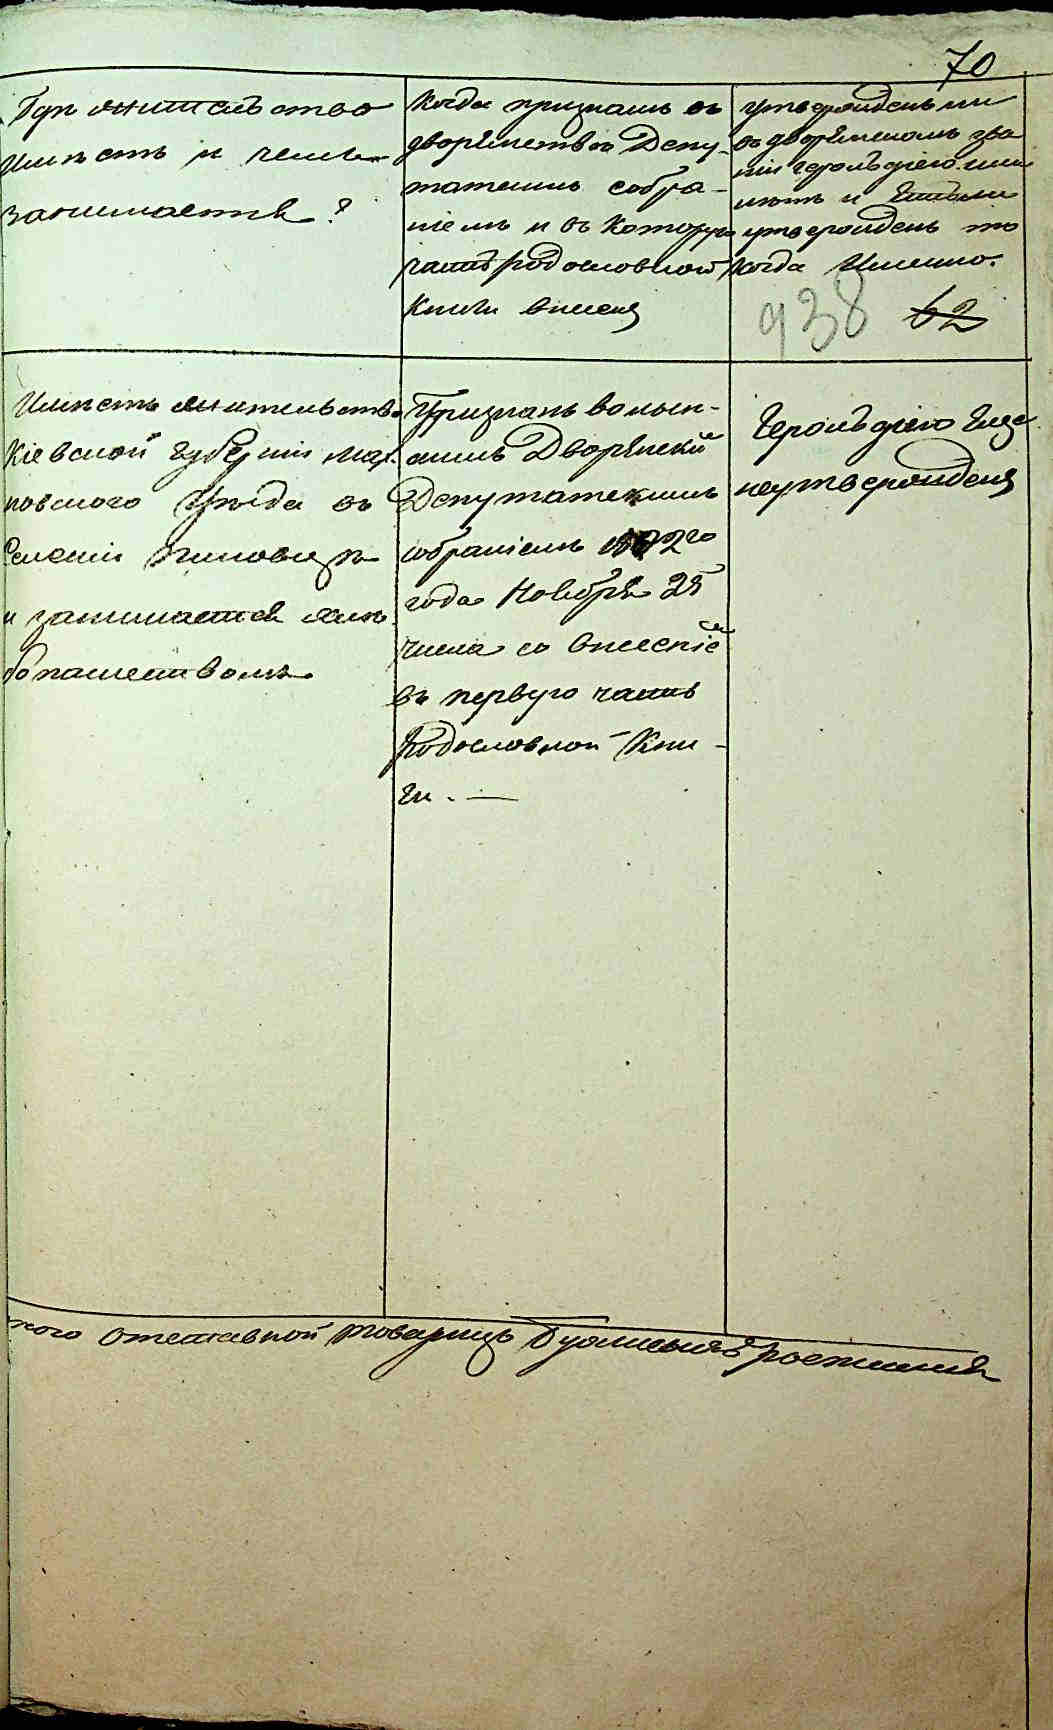 70
Гдѣ жительство
имѣетъ и чемъ
занимается?
Когда признанъ въ
дворянствѣ Депу-
татскимъ собра-
ніемъ и въ которую
часть родословной
книги внесенъ
утвержденъ ли
въ дворянскомъ зва
ніи герольдіею или
нѣтъ и если
утвержденъ то
когда Именно.
938 62
Имѣетъ жительство
Кіевской Губерніи
уѣзда въ
селеніи
и занимается хлѣ
бопашествомъ
Признанъ волын-
скимъ Дворянскій
Депутатскимъ
собраніемъ 1802го
года Ноября 25
числа со внесеніе
въ первую часть
Родословной Кни-
ги. —
Герольдіею еще
неутвержденъ
отставной товарищъ